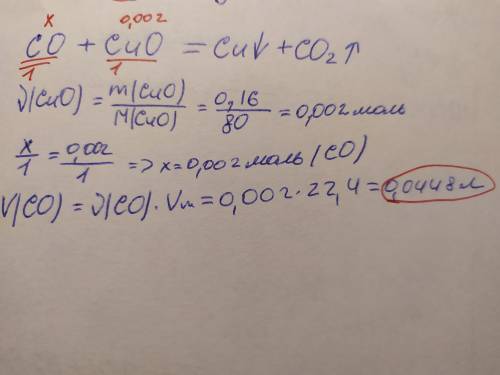 x 0,002
CO + CuO = Cu↓ + CO₂↑
1 1
ν(CuO) = m(CuO)/M(CuO) = 0,16/80 = 0,002 моль
x/1 = 0,002/1 => x = 0,002 моль (CO)
V(CO) = ν(CO) · Vm = 0,002 · 22,4 = 0,0448 л